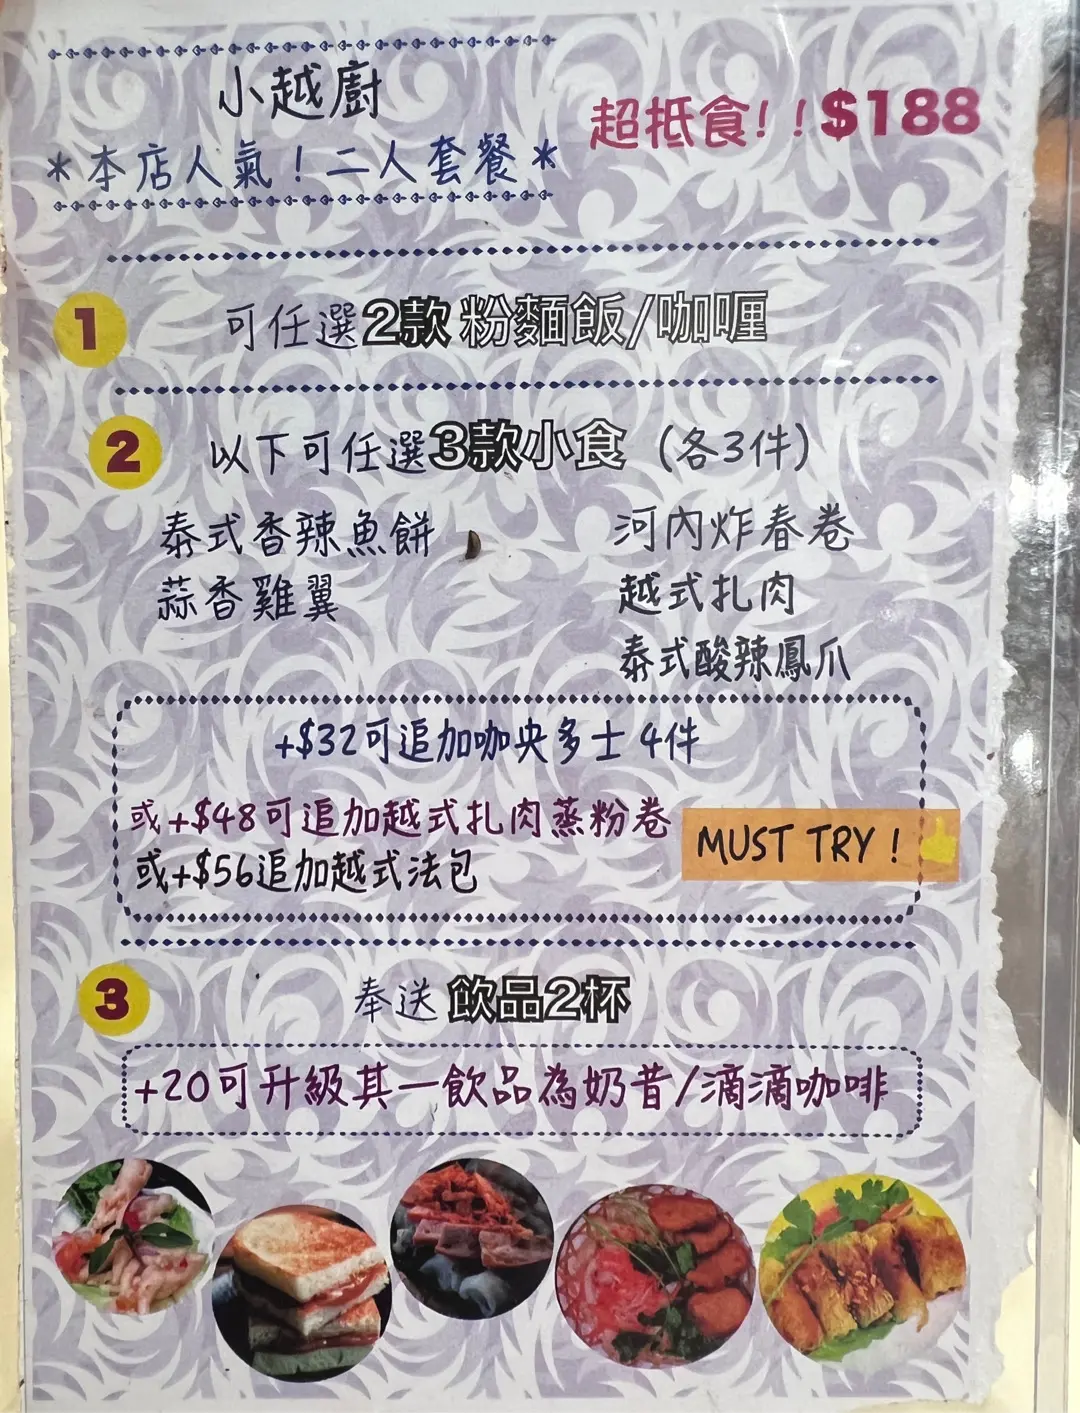 小越廚
＊本店人氣！二人套餐＊
超抵食！！$188
1 可任選2款 粉麵飯/咖喱
2 以下可任選3款小食（各3件）
泰式香辣魚餅
蒜香雞翼
河內炸春卷
越式扎肉
泰式酸辣鳳爪
+$32可追加咖央多士 4件
或+$48可追加越式扎肉蒸粉卷
或+$56追加越式法包
MUST TRY !
3 奉送 飲品2杯
+20可升級其一飲品為奶昔/滴滴咖啡